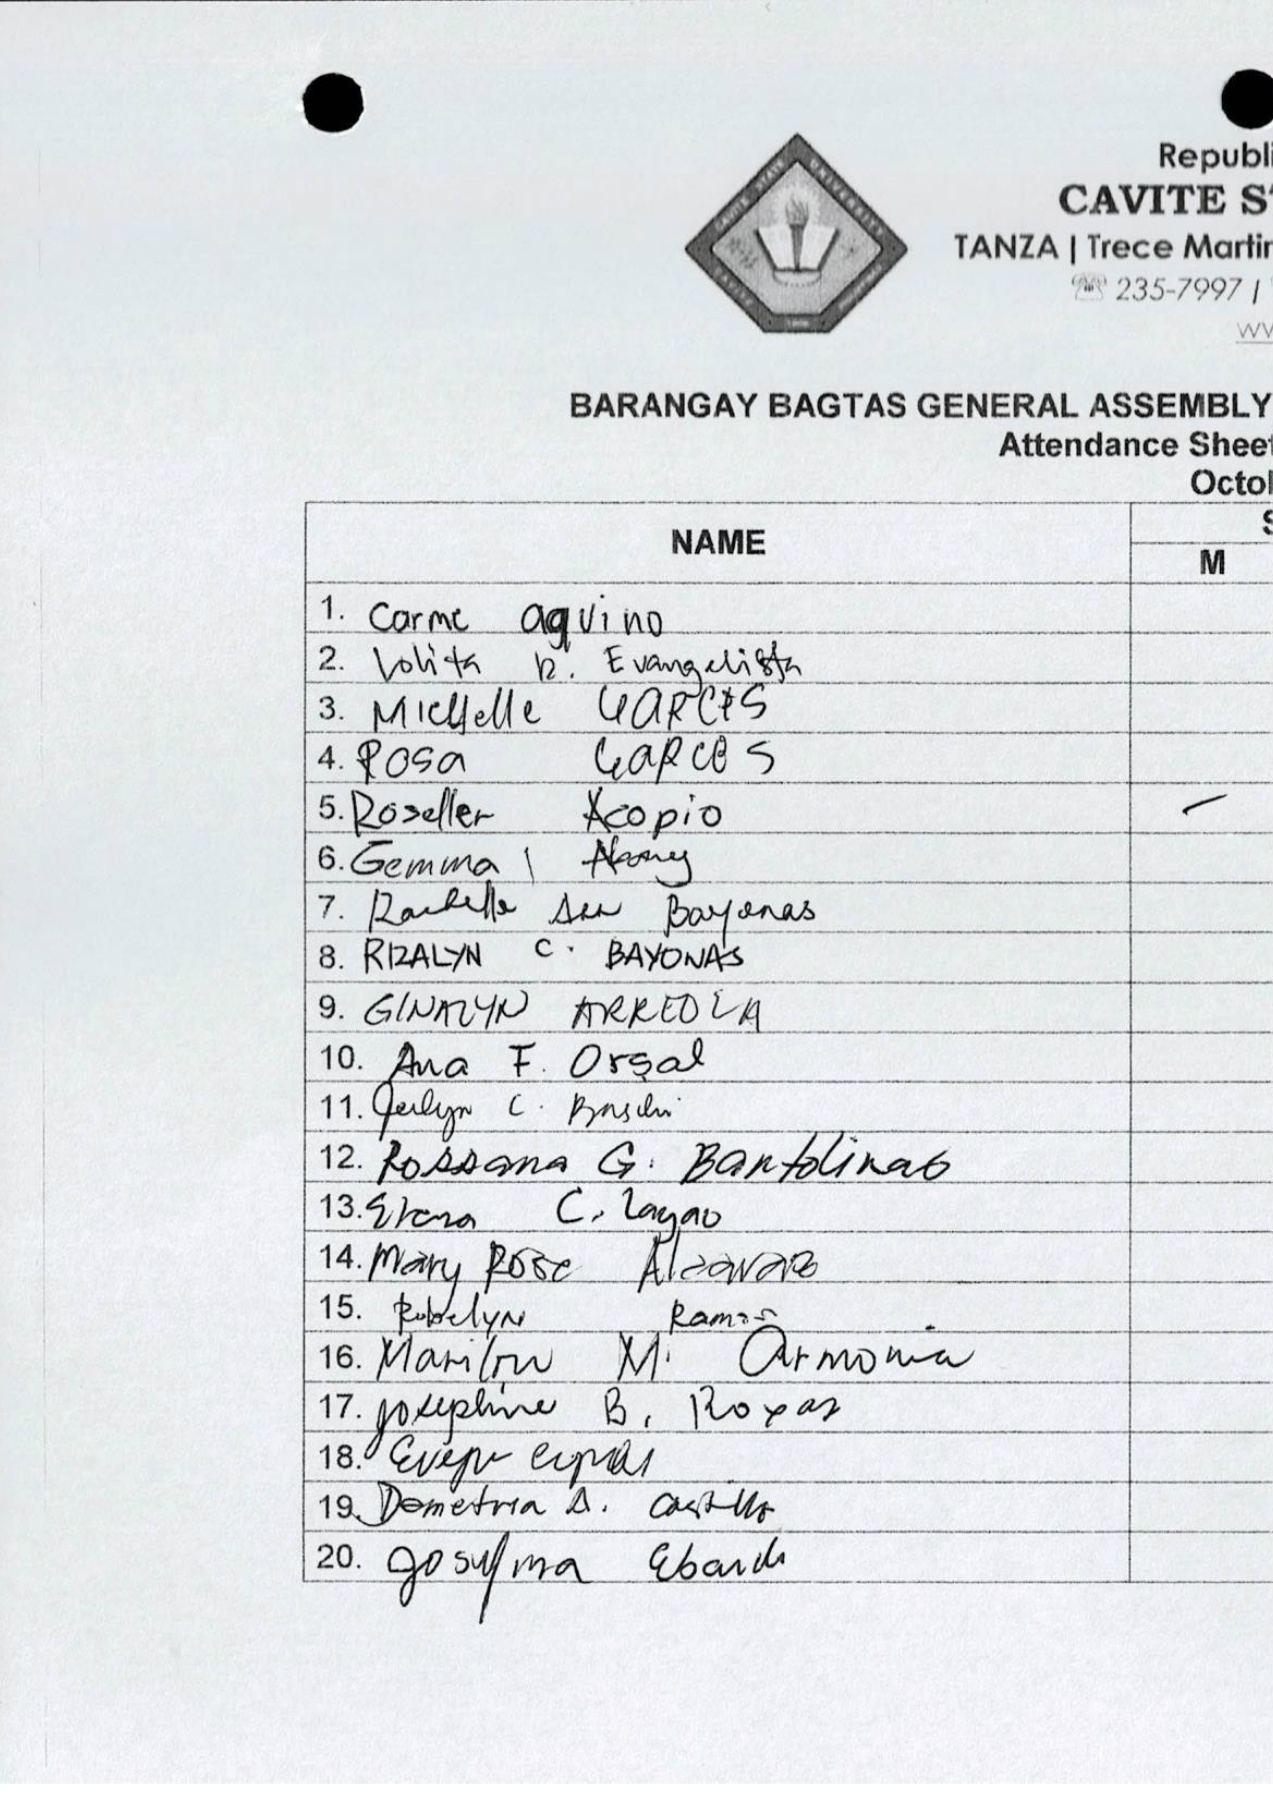 Republi
CAVITE S
TANZA | Trece Martir
☏ 235-7997 |
BARANGAY BAGTAS GENERAL ASSEMBLY
Attendance Sheet
Octo
NAME
M
1. Carme aquino
2. Lolita R. Evangelista
3. Michelle GARCES
4. ROSA GARCES
5. Roseller Acopio
6. Gemma
7. Rachelle Ann Bayonas
8. RIZALYN C. BAYONAS
9. GINALYN ARREOLA
10. Ana F. Orsal
11. Jerlyn C.
12. Rossana G. Bantolinao
13. Elena C. Layao
14. Mary Rose
15. Robelyn Ramos
16. Marilou M. Armonia
17. Josephine B. Roxas
18.
19. Demetria A. Castillo
20.